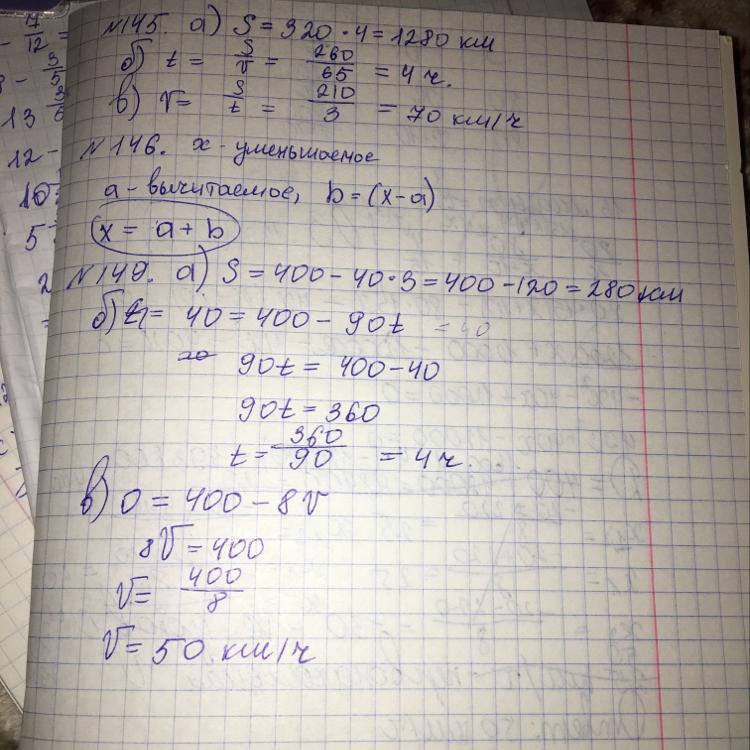 №145. а) S = 320 · 4 = 1280 км
б) t = S/v = 260/65 = 4 ч.
в) V = S/t = 210/3 = 70 км/ч
№146. x - уменьшаемое
a - вычитаемое, b = (x - a)
x = a + b
№149. а) S = 400 - 40 · 3 = 400 - 120 = 280 км
б) 40 = 400 - 90t = 40
90t = 400 - 40
90t = 360
t = 360/90 = 4 ч.
в) 0 = 400 - 8V
8V = 400
V = 400/8
V = 50 км/ч
- 7/12 =
13
12 -
10
5
2